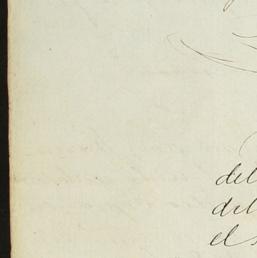 del
del
el